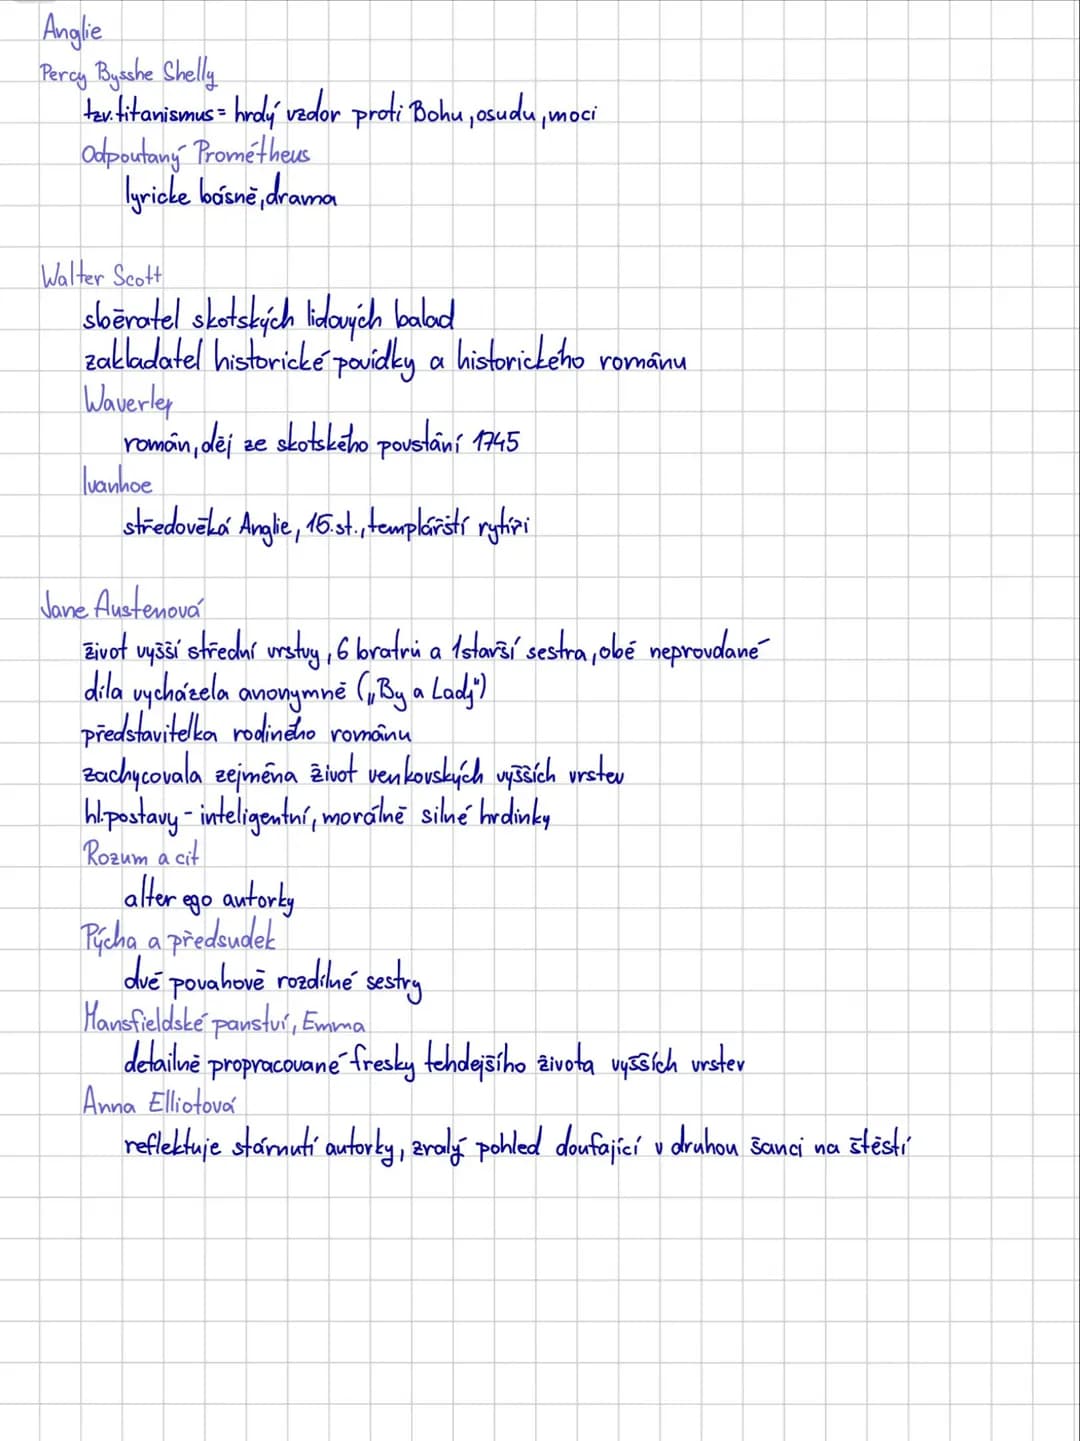 Anglie
Percy Bysshe Shelly
tzv. titanismus = hrdý vzdor proti Bohu, osudu, moci
Odpoutaný Prométheus
lyricke básně, drama
Walter Scott
sběratel skotských lidových balad
zakladatel historické povídky a historického románu
Waverley
román, děj ze skotského povstání 1745
Ivanhoe
středověká Anglie, 15. st., templářští rytíři
Jane Austenová
život vyšší střední vrstvy, 6 bratrů a 1 starší sestra, obě neprovdané
díla vycházela anonymně („By a Lady")
představitelka rodiného románu
zachycovala zejména život venkovských vyšších vrstev
hl. postavy - inteligentní, morálně silné hrdinky
Rozum a cit
alter ego autorky
Pýcha a předsudek
dvě povahově rozdílné sestry
Mansfieldské panství, Emma
detailně propracované fresky tehdejšího života vyšších vrstev
Anna Elliotová
reflektuje stárnutí autorky, zralý pohled doufající v druhou šanci na štěstí